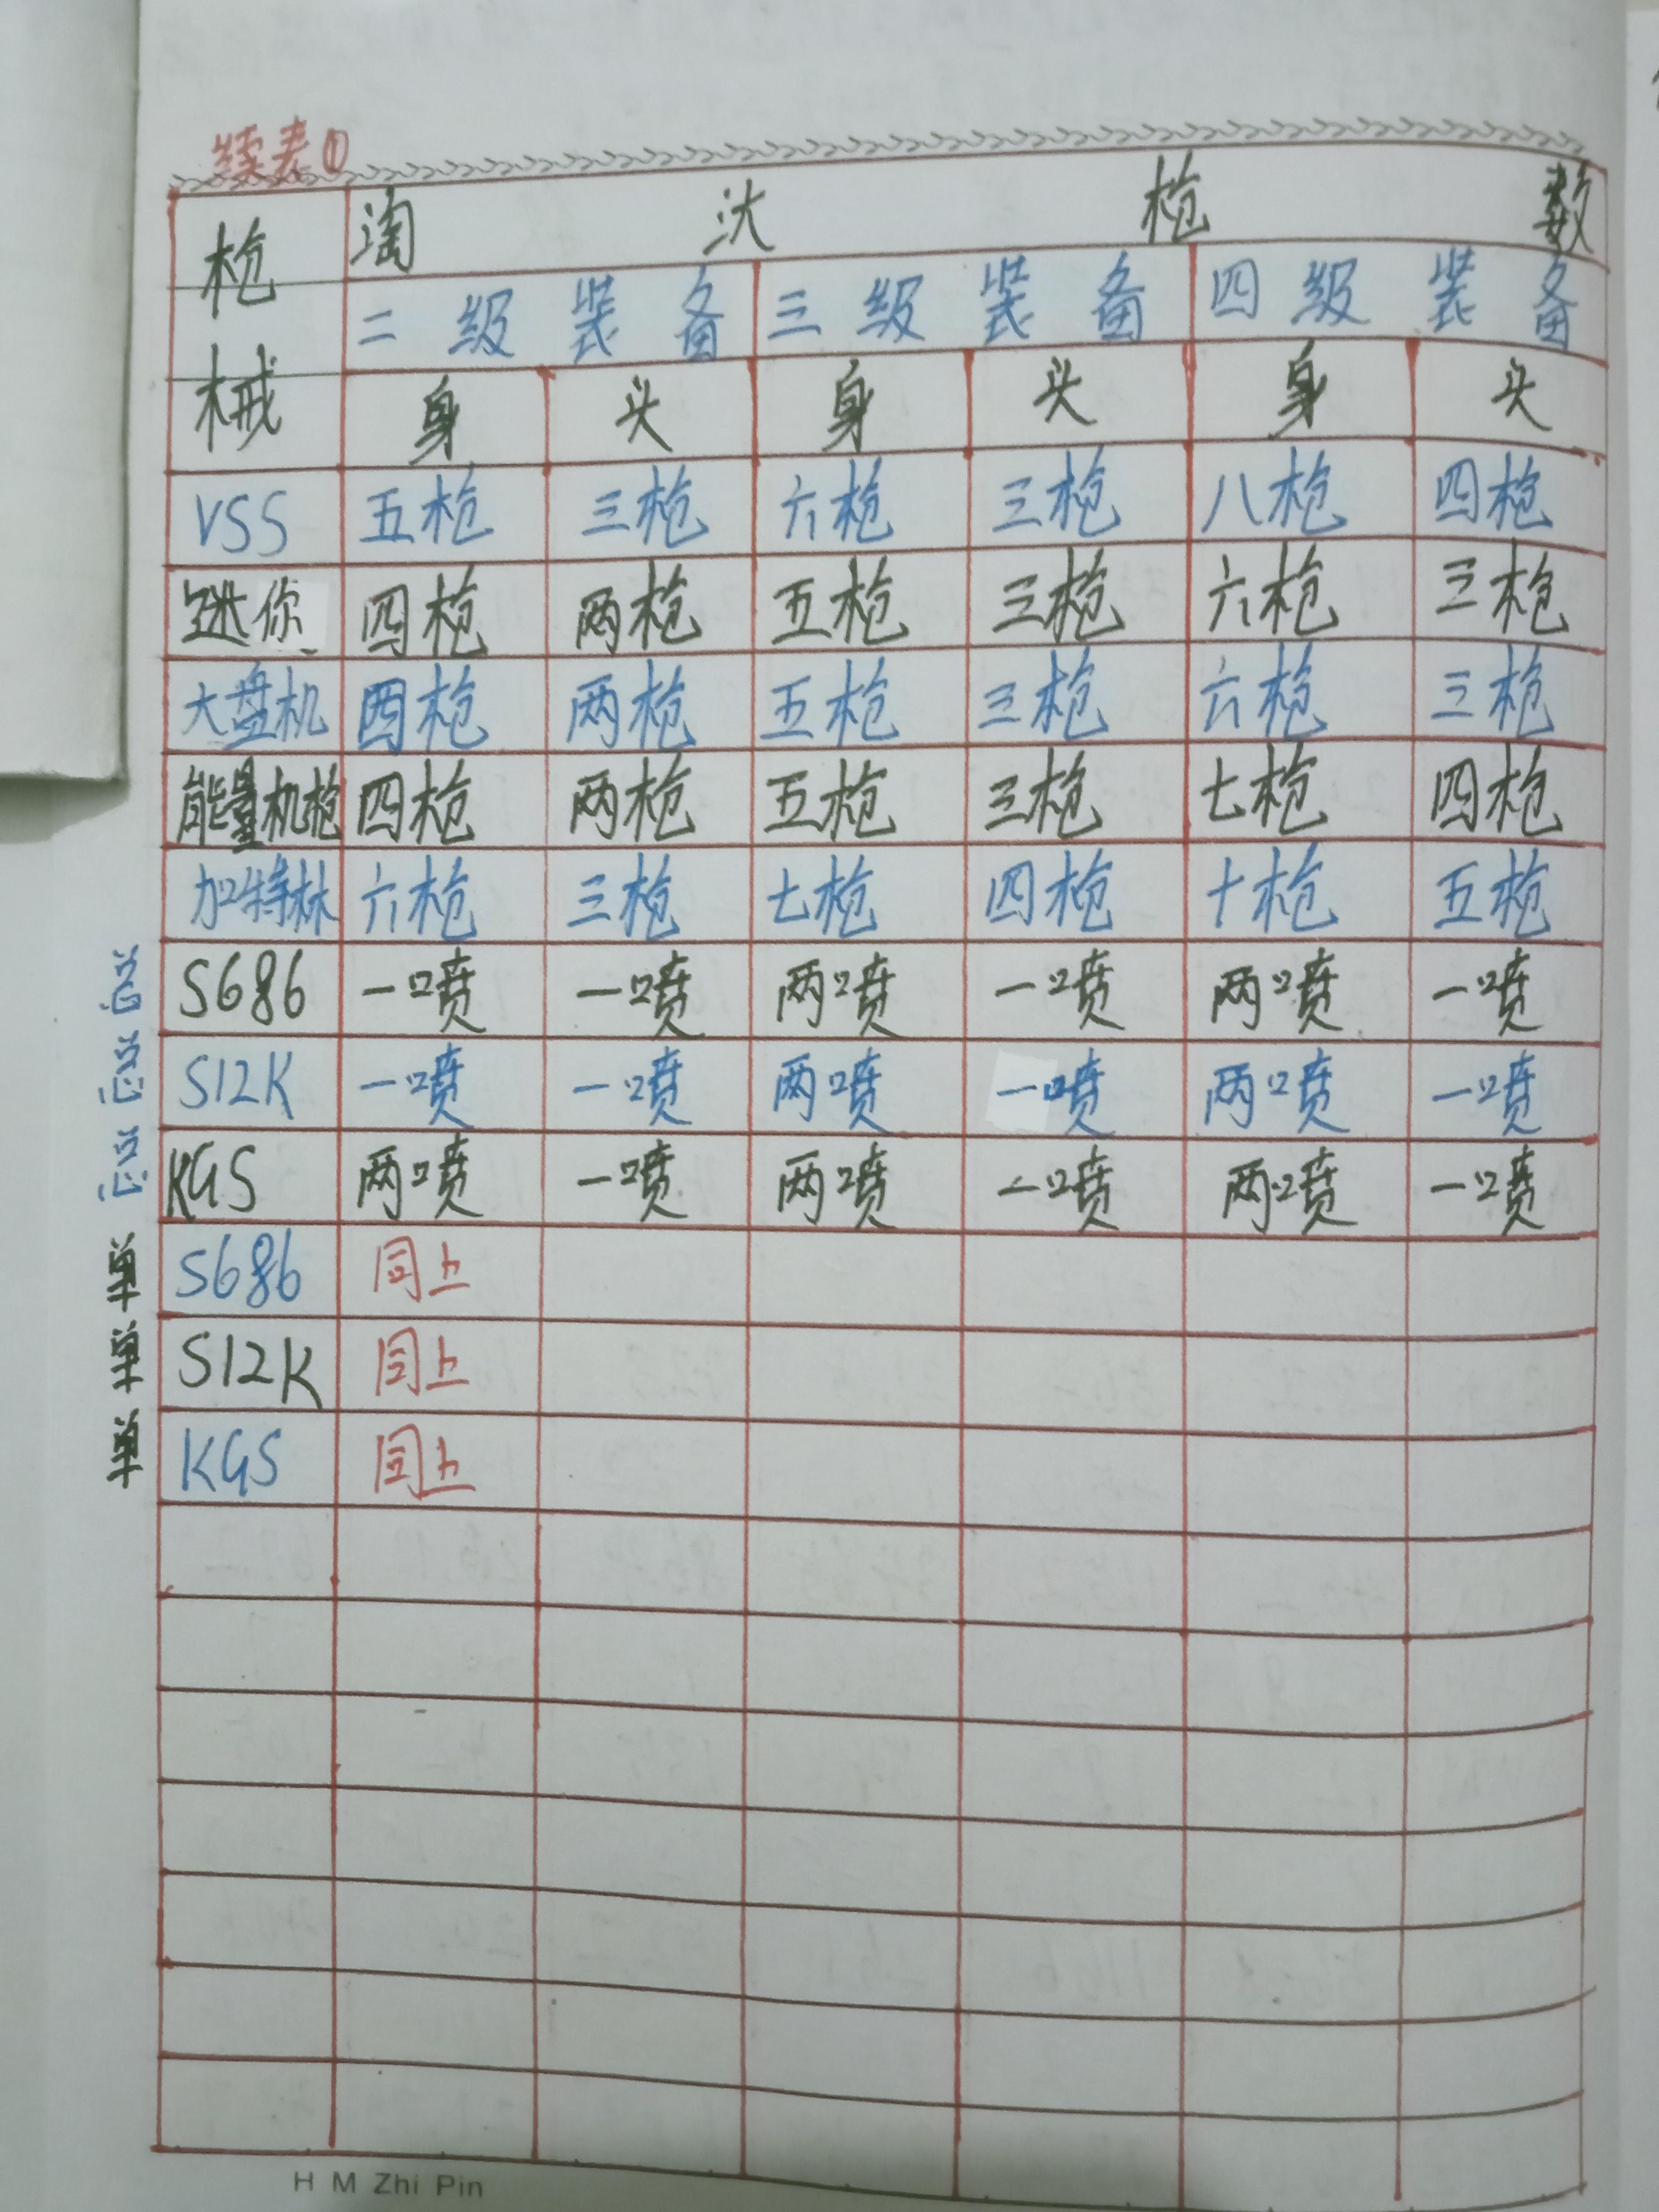 续表①
枪械 淘汰枪数
二级装备 三级装备 四级装备
身 头 身 头 身 头
VSS 五枪 三枪 六枪 三枪 八枪 四枪
迷你 四枪 两枪 五枪 三枪 六枪 三枪
大盘机 四枪 两枪 五枪 三枪 六枪 三枪
能量机枪 四枪 两枪 五枪 三枪 七枪 四枪
加特林 六枪 三枪 七枪 四枪 十枪 五枪
总 S686 一喷 一喷 两喷 一喷 两喷 一喷
总 S12K 一喷 一喷 两喷 一喷 两喷 一喷
总 KGS 两喷 一喷 两喷 一喷 两喷 一喷
单 S686 同上
单 S12K 同上
单 KGS 同上
H M Zhi Pin